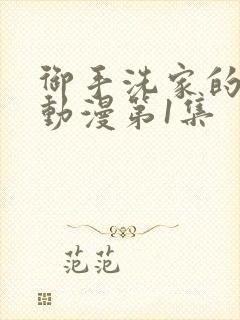 御手洗家的
動漫第1集
范范